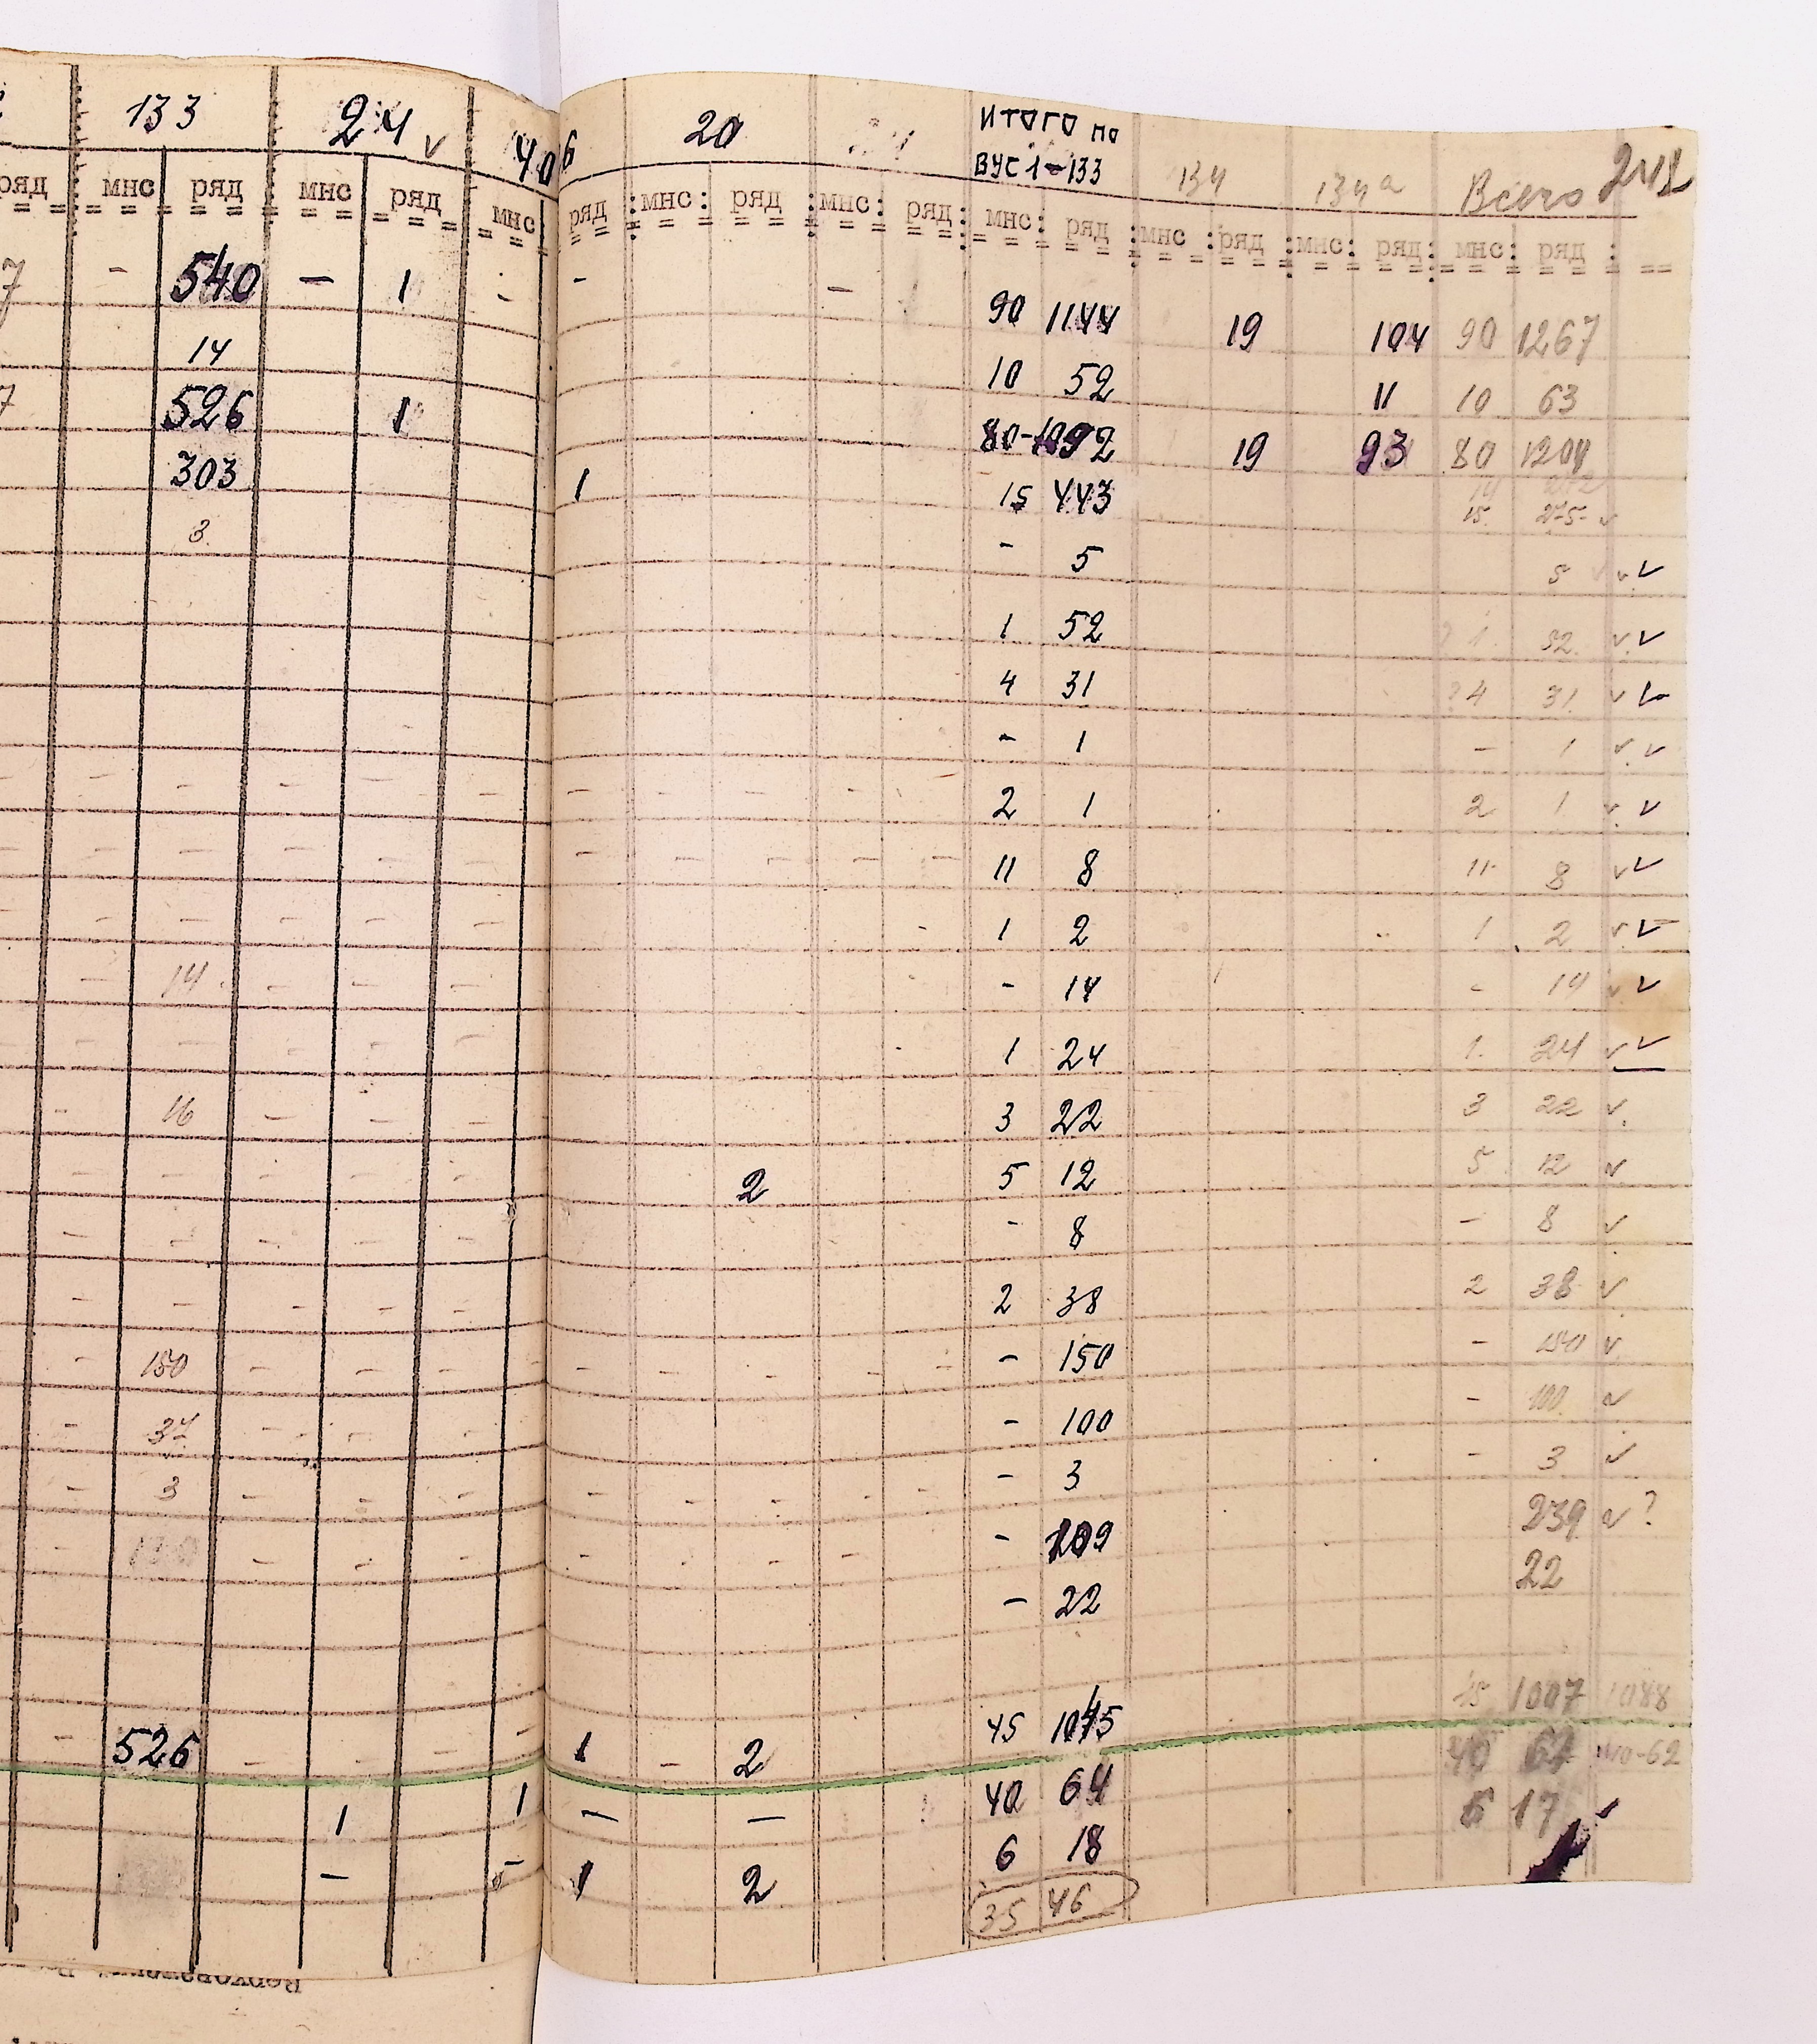 133 24 ✓ 406 20 ИТОГО по
ВУС 1-133 134 134а Всего
ряд мнс ряд мнс ряд мнс ряд мнс: ряд мнс: ряд: мнс: ряд мнс ряд мнс: ряд: мнс: ряд
7 - 540 - 1 - - - 90 1144 19 104 90 1267
14 10 52 11 10 63
7 526 1 80-1092 19 93 80 1204
303 1 15 443
15. 275- ✓
3. - 5 5 ✓ ✓
1 52 1. 52. ✓ ✓
4 31 ?4 31. ✓
- 1 - 1 ✓ ✓
- - - - - - - - - - 2 1 2 1 ✓ ✓
- - - - - - - - - - 11 8 11 8 ✓ ✓
- - - - - 1 2 1 2 ✓ ✓
- 14 - - - - 14 - 14 ✓ ✓
- - - - - 1 24 1. 24 ✓ ✓
- 16 - - - 3 22 3 22 ✓
- - - - - 2 5 12 5 12 ✓
- - - - - - 8 - 8 ✓
- - - - - 2 38 2 38 ✓
- 150 - - - - - - - - - 150 - 150 ✓
- 37 - - - - 100 - 100 ✓
- 3 - - - - - - - - - 3 - 3 ✓
- - - - - - - - 239 ✓ ?
- 22 22
45 1045 15 1007 1088
- 526 - - - 1 - 2
1 1 - - 40 64 40 64
6 18 5 17
- 1 2
35 46